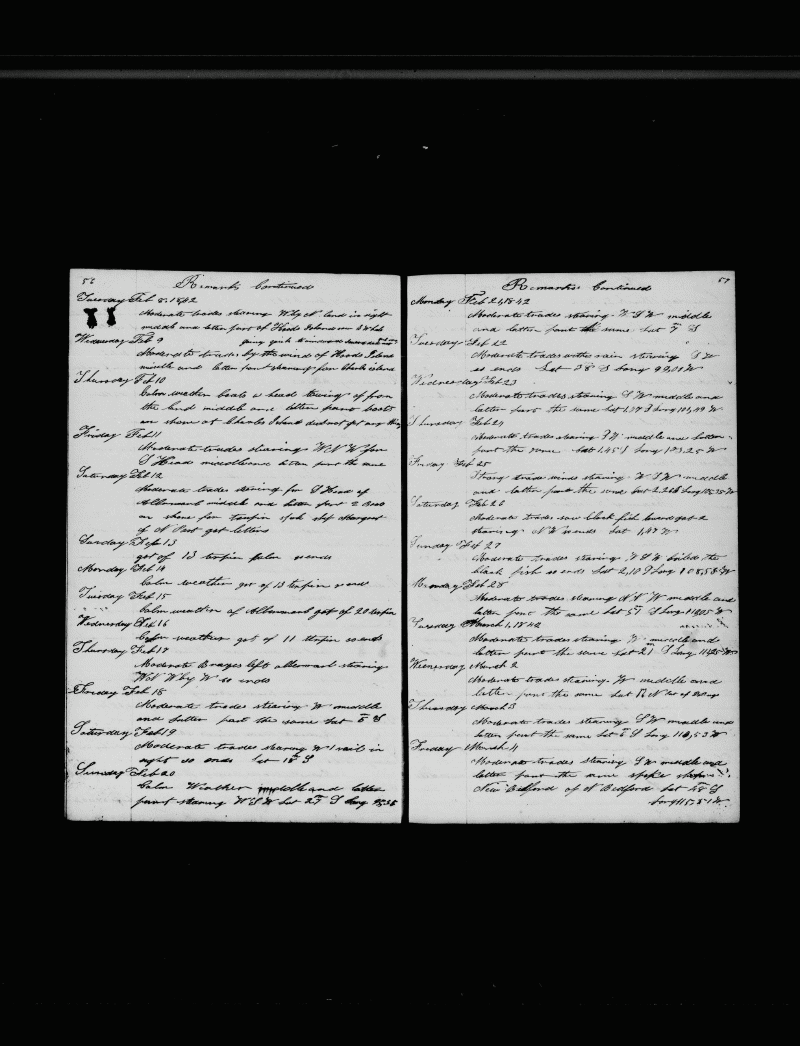 56
Remarks Continued
Tuesday Feb 8, 1842
Moderate trades stearing W by N land in sight
middle and latter part of Hoods Island
Wednesday Feb 9
Moderate trades by the wind of Hoods Island
middle and latter part stearing for Charls island
Thursday Feb 10
Calm weather boats a head towing of from
the land middle and latter part boats
on shore at Charles Island did not get any thing
Friday Feb 11
Moderate trades stearing W N W for
S Head middle and latter part the same
Saturday Feb 12
Moderate trades stearing for S Head of
Albermarl middle and latter part 2 boats
on shore for terpin spok ship Margaret
of N Port got letters
Sunday Feb 13
got of 13 terpin calm so ends
Monday Feb 14
Calm weather got of 13 terpin so ends
Tuesday Feb 15
Calm weather of Albermarl got of 20 terpin
Wednesday Feb 16
Calm weather got of 11 terpin so ends
Thursday Feb 17
Moderate Breezes left albermarl stearing
W by W so ends
Friday Feb 18
Moderate trades stearing W middle
and latter part the same Lat S
Saturday Feb 19
Moderate trades stearing W 1 sail in
sight so ends Lat S
Sunday Feb 20
Calm Weather middle and latter
part stearing W S W Lat 27 S Long
57
Remarks Continued
Monday Feb 21, 1842
Moderate trades stearing W S W middle
and latter part the same Lat S
Tuesday Feb 22
Moderate trades with rain stearing S W
so ends Lat 28 S Long 99,01 W
Wednesday Feb 23
Moderate trades stearing S W middle and
latter part the same Lat 1,17 S Long 101,49 W
Thursday Feb 24
Moderate trades stearing S W middle and latter
part the same Lat 1,45 S Long 103,25 W
Friday Feb 25
Strong trade winds stearing W S W middle
and latter part the same Lat 2,26 S Long W
Saturday Feb 26
Moderate trades saw black fish lowerd got 2
stearing N W so ends Lat 1,47
Sunday Feb 27
Moderate trades stearing W S W boiled the
black fish so ends Lat 2,10 S Long 108,58 W
Monday Feb 28
Moderate trades stearing N W middle and
latter part the same Lat 51 S Long W
Tuesday March 1, 1842
Moderate trades stearing W middle and
latter part the same Lat 21 S Long W
Wednesday March 2
Moderate trades stearing W middle and
latter part the same Lat N
Thursday March 3
Moderate trades stearing S W middle and
latter part the same Lat S Long 116,53 W
Friday March 4
Moderate trades stearing S W middle and
latter part the same spoke ship
New Bedford of N Bedford Lat 48 S
Long 117,51 W